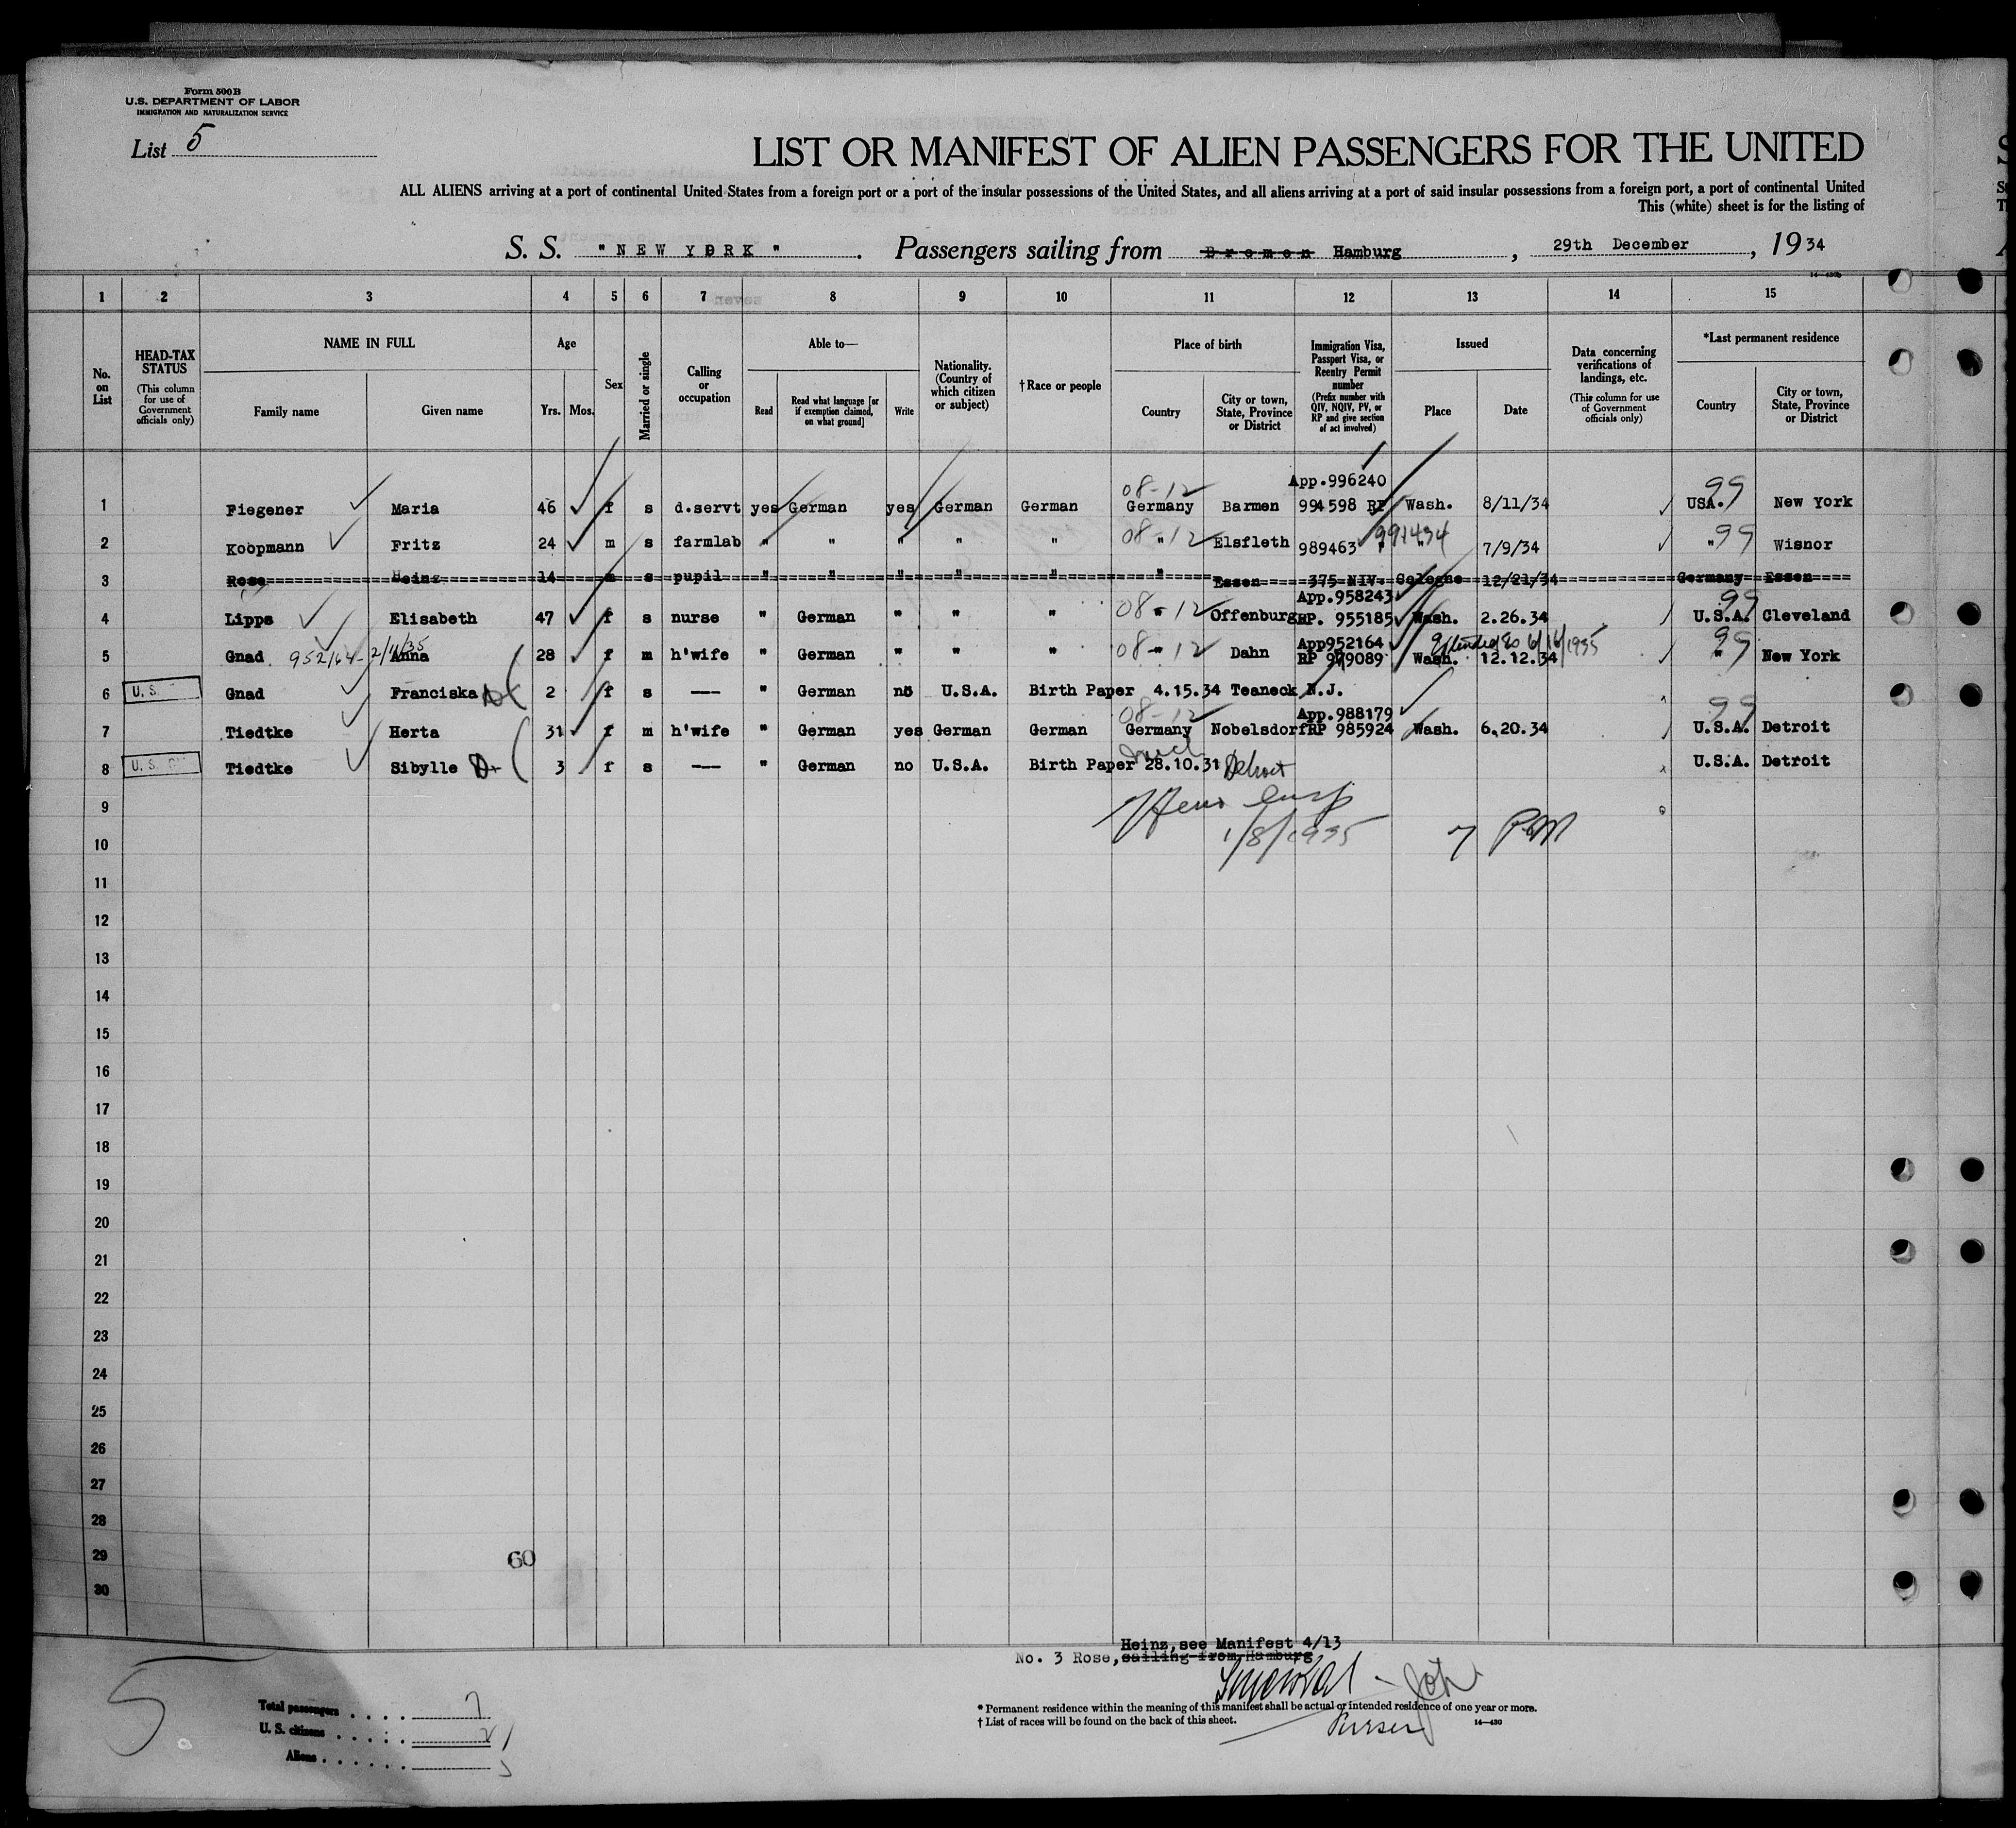 Form 500B
U.S. DEPARTMENT OF LABOR
IMMIGRATION AND NATURALIZATION SERVICE
List 5
LIST OR MANIFEST OF ALIEN PASSENGERS FOR THE UNITED
ALL ALIENS arriving at a port of continental United States from a foreign port or a port of the insular possessions of the United States, and all aliens arriving at a port of said insular possessions from a foreign port, a port of continental United
This (white) sheet is for the listing of
S. S. "NEW YORK". Passengers sailing from Bremen Hamburg, 29th December, 1934
1 2 3 4 5 6 7 8 9 10 11 12 13 14 15
No. on List
HEAD-TAX STATUS (This column for use of Government officials only)
NAME IN FULL Family name Given name
Age Yrs. Mos.
Sex
Married or single
Calling or occupation
Able to— Read Read what language [or if exemption claimed, on what ground] Write
Nationality. (Country of which citizen or subject)
†Race or people
Place of birth Country City or town, State, Province or District
Immigration Visa, Passport Visa, or Reentry Permit number (Prefix number with QIV, NQIV, PV, or RP and give section of act involved)
Issued Place Date
Data concerning verifications of landings, etc. (This column for use of Government officials only)
*Last permanent residence Country City or town, State, Province or District
08-12 App.996240 99
1 Fiegener Maria 46 f s d.servt yes German yes German German Germany Barmen 994598 RP Wash. 8/11/34 USA. New York
2 Koopmann Fritz 24 m s farmlab " " " " " 08-12 " Elsfleth 989463 " 991434 " 7/9/34 " 99 Wisnor
3 Rose Heinz 14 m s pupil " " " " " " Essen 375 NIV. Cologne 12/21/34 Germany Essen
App.958243 99
4 Lipps Elisabeth 47 f s nurse " German " " " 08-12 " Offenburg RP. 955185 Wash. 2.26.34 U.S.A. Cleveland
952164-2/11/35 App952164 Extended to 6/16/1935 99
5 Gnad Anna 28 f m h'wife " German " " " 08-12 " Dahn RP 979089 Wash. 12.12.34 " New York
6 U.S. Gnad Franciska 2 f s — " German no U.S.A. Birth Paper 4.15.34 Teaneck N.J.
08-12 App.988179 99
7 Tiedtke Herta 31 f m h'wife " German yes German German Germany Nobelsdorf RP 985924 Wash. 6.20.34 U.S.A. Detroit
8 U.S. Tiedtke Sibylle 3 f s — " German no U.S.A. Birth Paper 28.10.31 Detroit U.S.A. Detroit
9
10 1/8/1935 7 PM
11
12
13
14
15
16
17
18
19
20
21
22
23
24
25
26
27
28
29 60
30
Heinz, see Manifest 4/13
No. 3 Rose, sailing from Hamburg
5
Total passengers 7
U. S. citizens 2
Aliens 5
* Permanent residence within the meaning of this manifest shall be actual or intended residence of one year or more.
† List of races will be found on the back of this sheet.
Purser
14—430